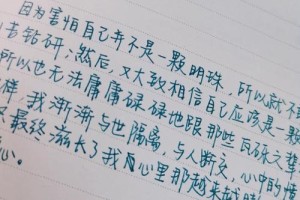 因为害怕自己并不是一颗明珠，所以就不
苦钻研；然后，又大致相信自己应该是一颗
所以也无法庸庸碌碌地跟那些瓦砾之辈
样，我渐渐与世隔离，与人断交，心中的愤
最终滋长了我内心里那越来越
心。